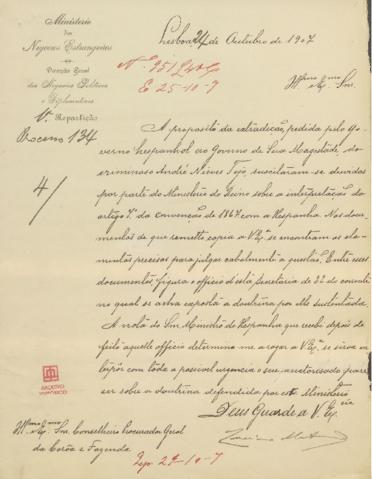 Ministerio
dos
Negocios Estrangeiros
Direcção Geral
dos Negocios Politicos
e Diplomaticos
1ª Repartição
Processo 134
4/
Lisboa 24 de Outubro de 1907
E 25-10-7
Illmo e Exmo Snr.
A proposito da extradição, pedida pelo Go-
verno Hespanhol ao Governo de Sua Magestade, do
criminoso André Nieves Tojo, suscitaram-se duvidas
por parte do Ministerio do Reino sobre a interpretação do
artigo 7º da convenção de 1867 com a Hespanha. Nos docu-
mentos de que remetto copia a V. Exª se encontram os ele-
mentos precisos para julgar cabalmente a questão. Entre esses
documentos figura o officio d'esta Secretaria de 22 do corrente
no qual se acha exposta a doutrina por ella sustentada.
A nota do Snr. Ministro de Hespanha que recebi depois de
feito aquelle officio determina-me a rogar a V. Exª se sirva e-
mittir com toda a possivel urgencia o seu auctorisado pare-
cer sobre a doutrina defendida por este Ministerio.
Deus Guarde a V. Exª
Illmo e Exmo Snr. Conselheiro Procurador Geral
da Corôa e Fazenda
29-10-7
ARQUIVO
HISTÓRICO